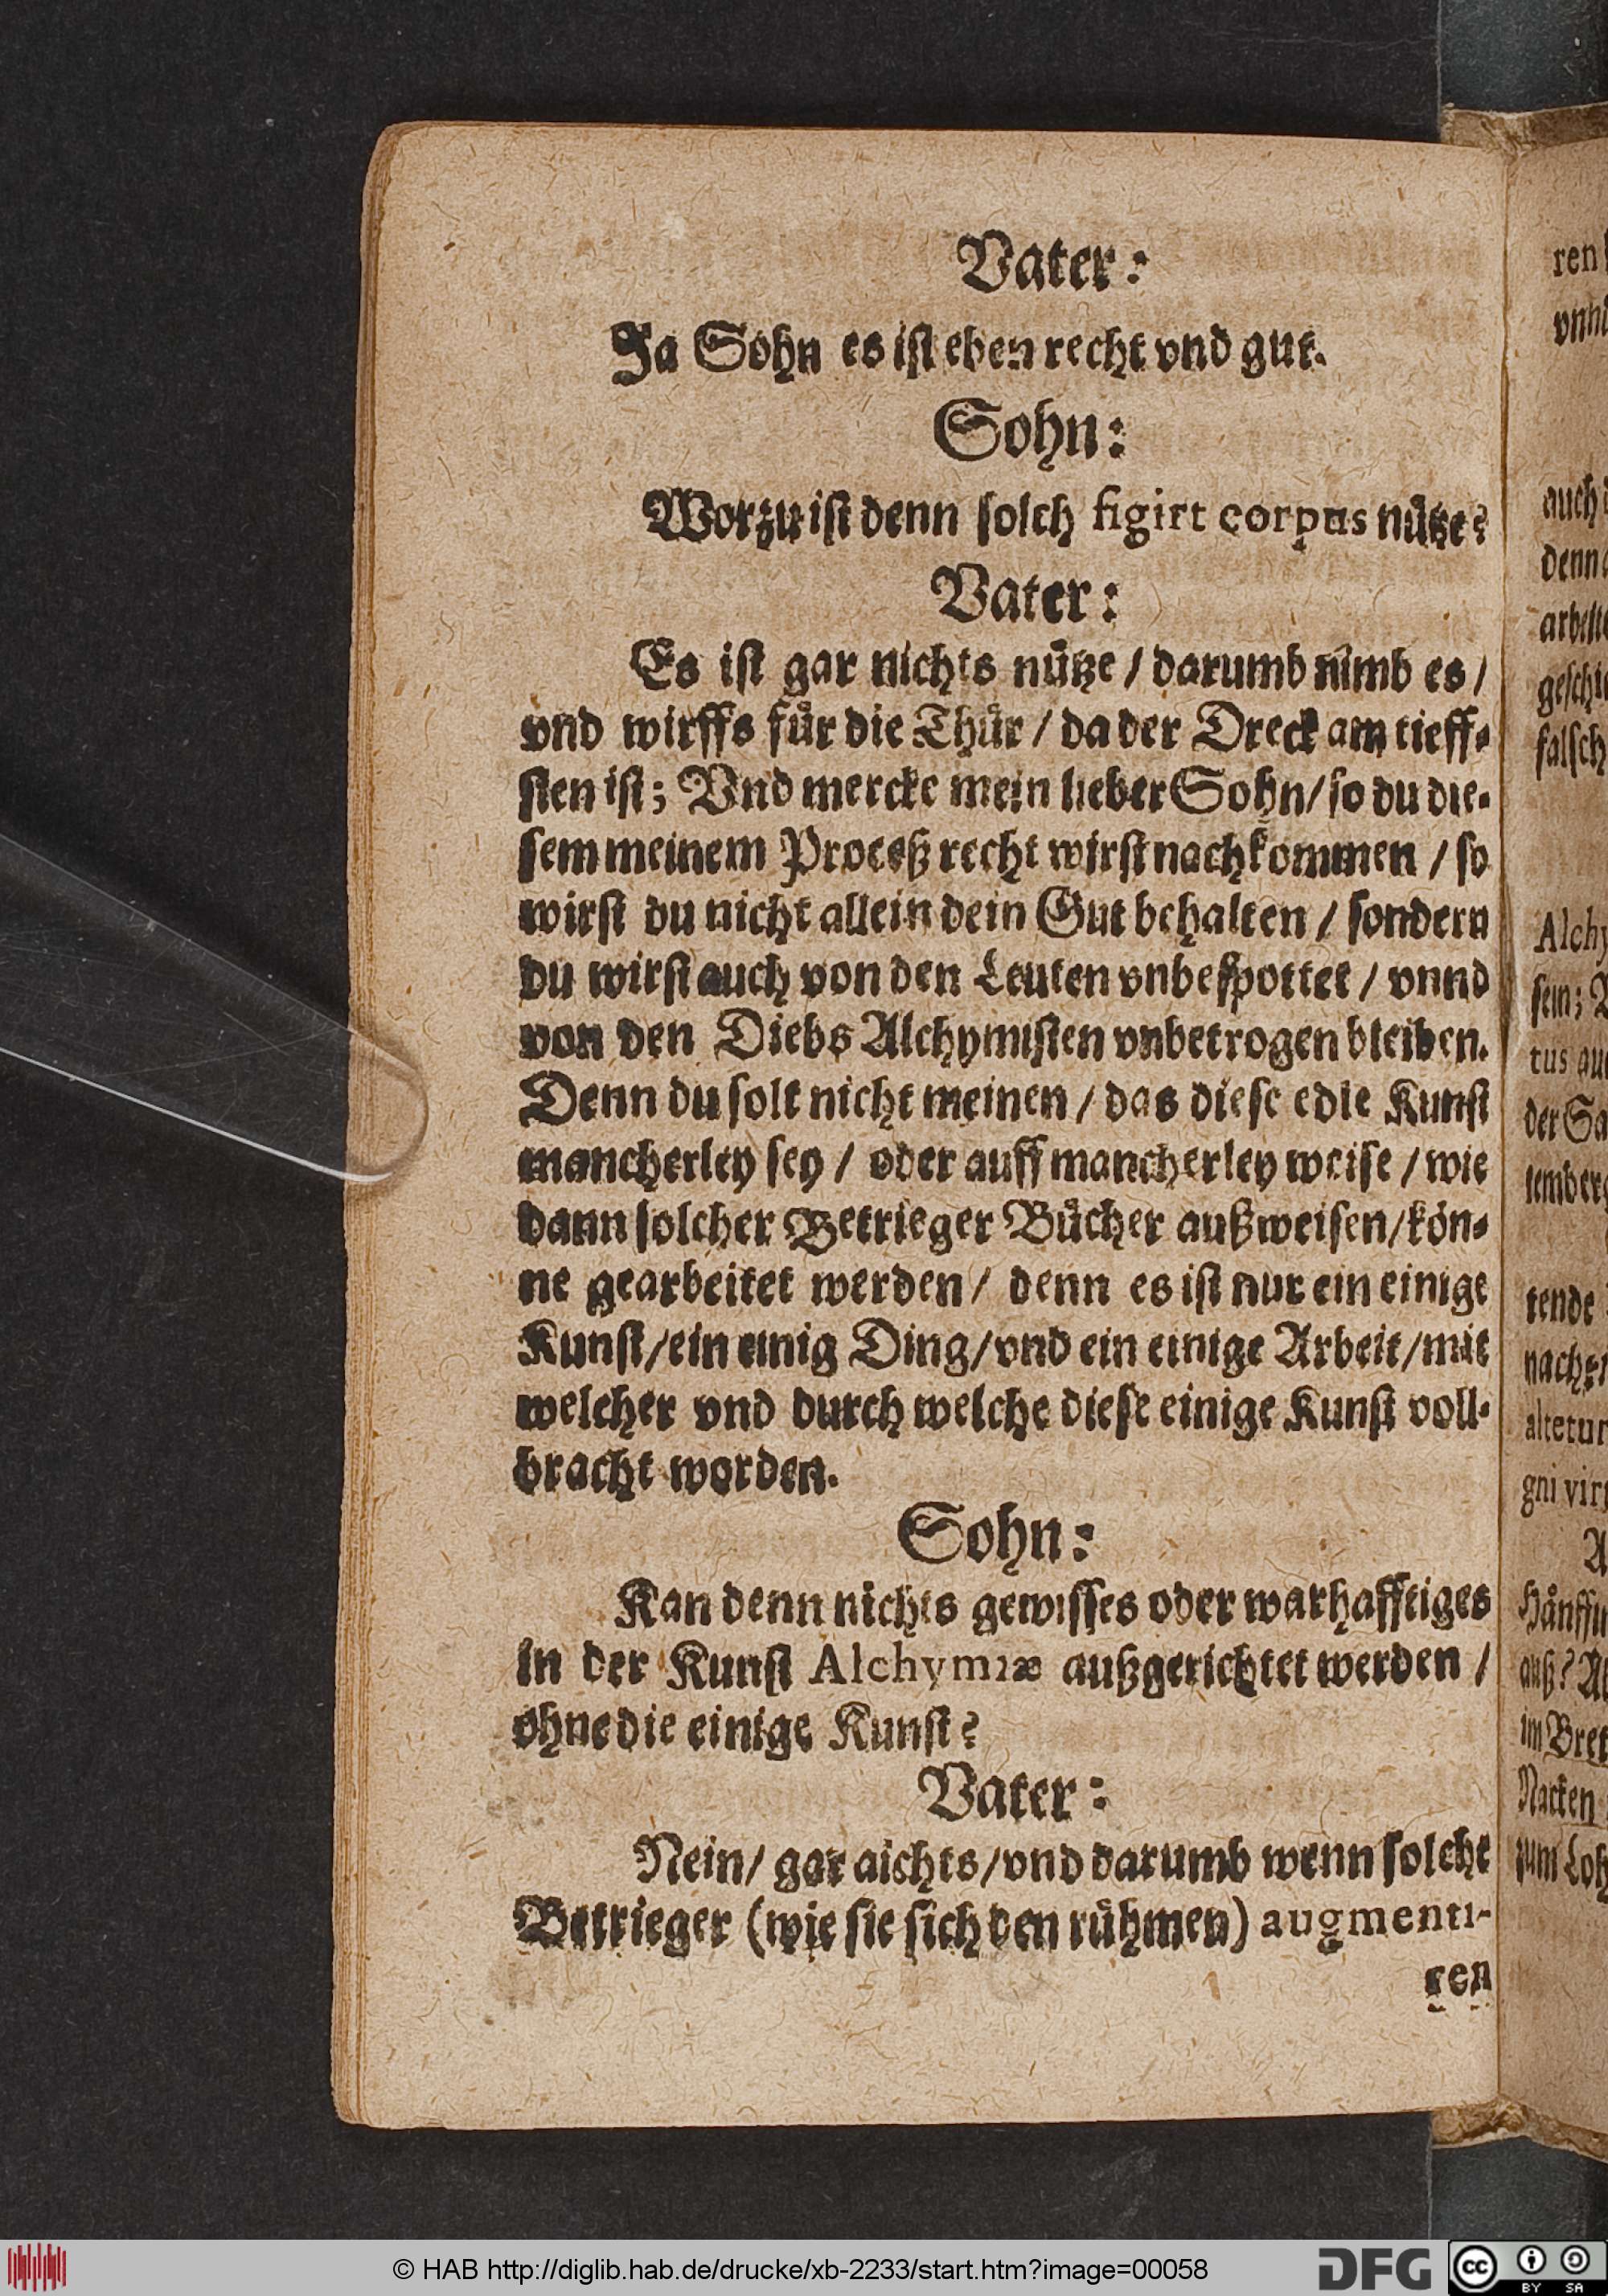 Vater:
Ja Sohn es ist eben recht vnd gut.
Sohn:
Worzu ist denn solch figirt corpus nütze?
Vater:
Es ist gar nichts nütze / darumb nimb es /
vnd wirffs für die Thür / da der Dreck am tieff-
sten ist; Vnd mercke mein lieber Sohn / so du die-
sem meinem Proceß recht wirst nachkommen / so
wirst du nicht allein dein Gut behalten / sondern
du wirst auch von den Leuten vnbespottet / vnnd
von den Diebs Alchymisten vnbetrogen bleiben.
Denn du solt nicht meinen / das diese edle Kunst
mancherley sey / oder auff mancherley weise / wie
dann solcher Betrieger Bücher außweisen / kön-
ne gearbeitet werden / denn es ist nur ein einige
Kunst / ein einig Ding / vnd ein einige Arbeit / mit
welcher vnd durch welche diese einige Kunst voll-
bracht worden.
Sohn:
Kan denn nichts gewisses oder warhafftiges
in der Kunst Alchymiæ außgerichtet werden /
ohne die einige Kunst?
Vater:
Nein / gar nichts / vnd darumb wenn solche
Betrieger (wie sie sich den rühmen) augmenti-
ren
ren
auch
arbeite
falsch
Alchy
sein;
tus
der
tende
altetur
gni
auß?
im
Nacken
zum
© HAB http://diglib.hab.de/drucke/xb-2233/start.htm?image=00058
DFG
cc
BY SA